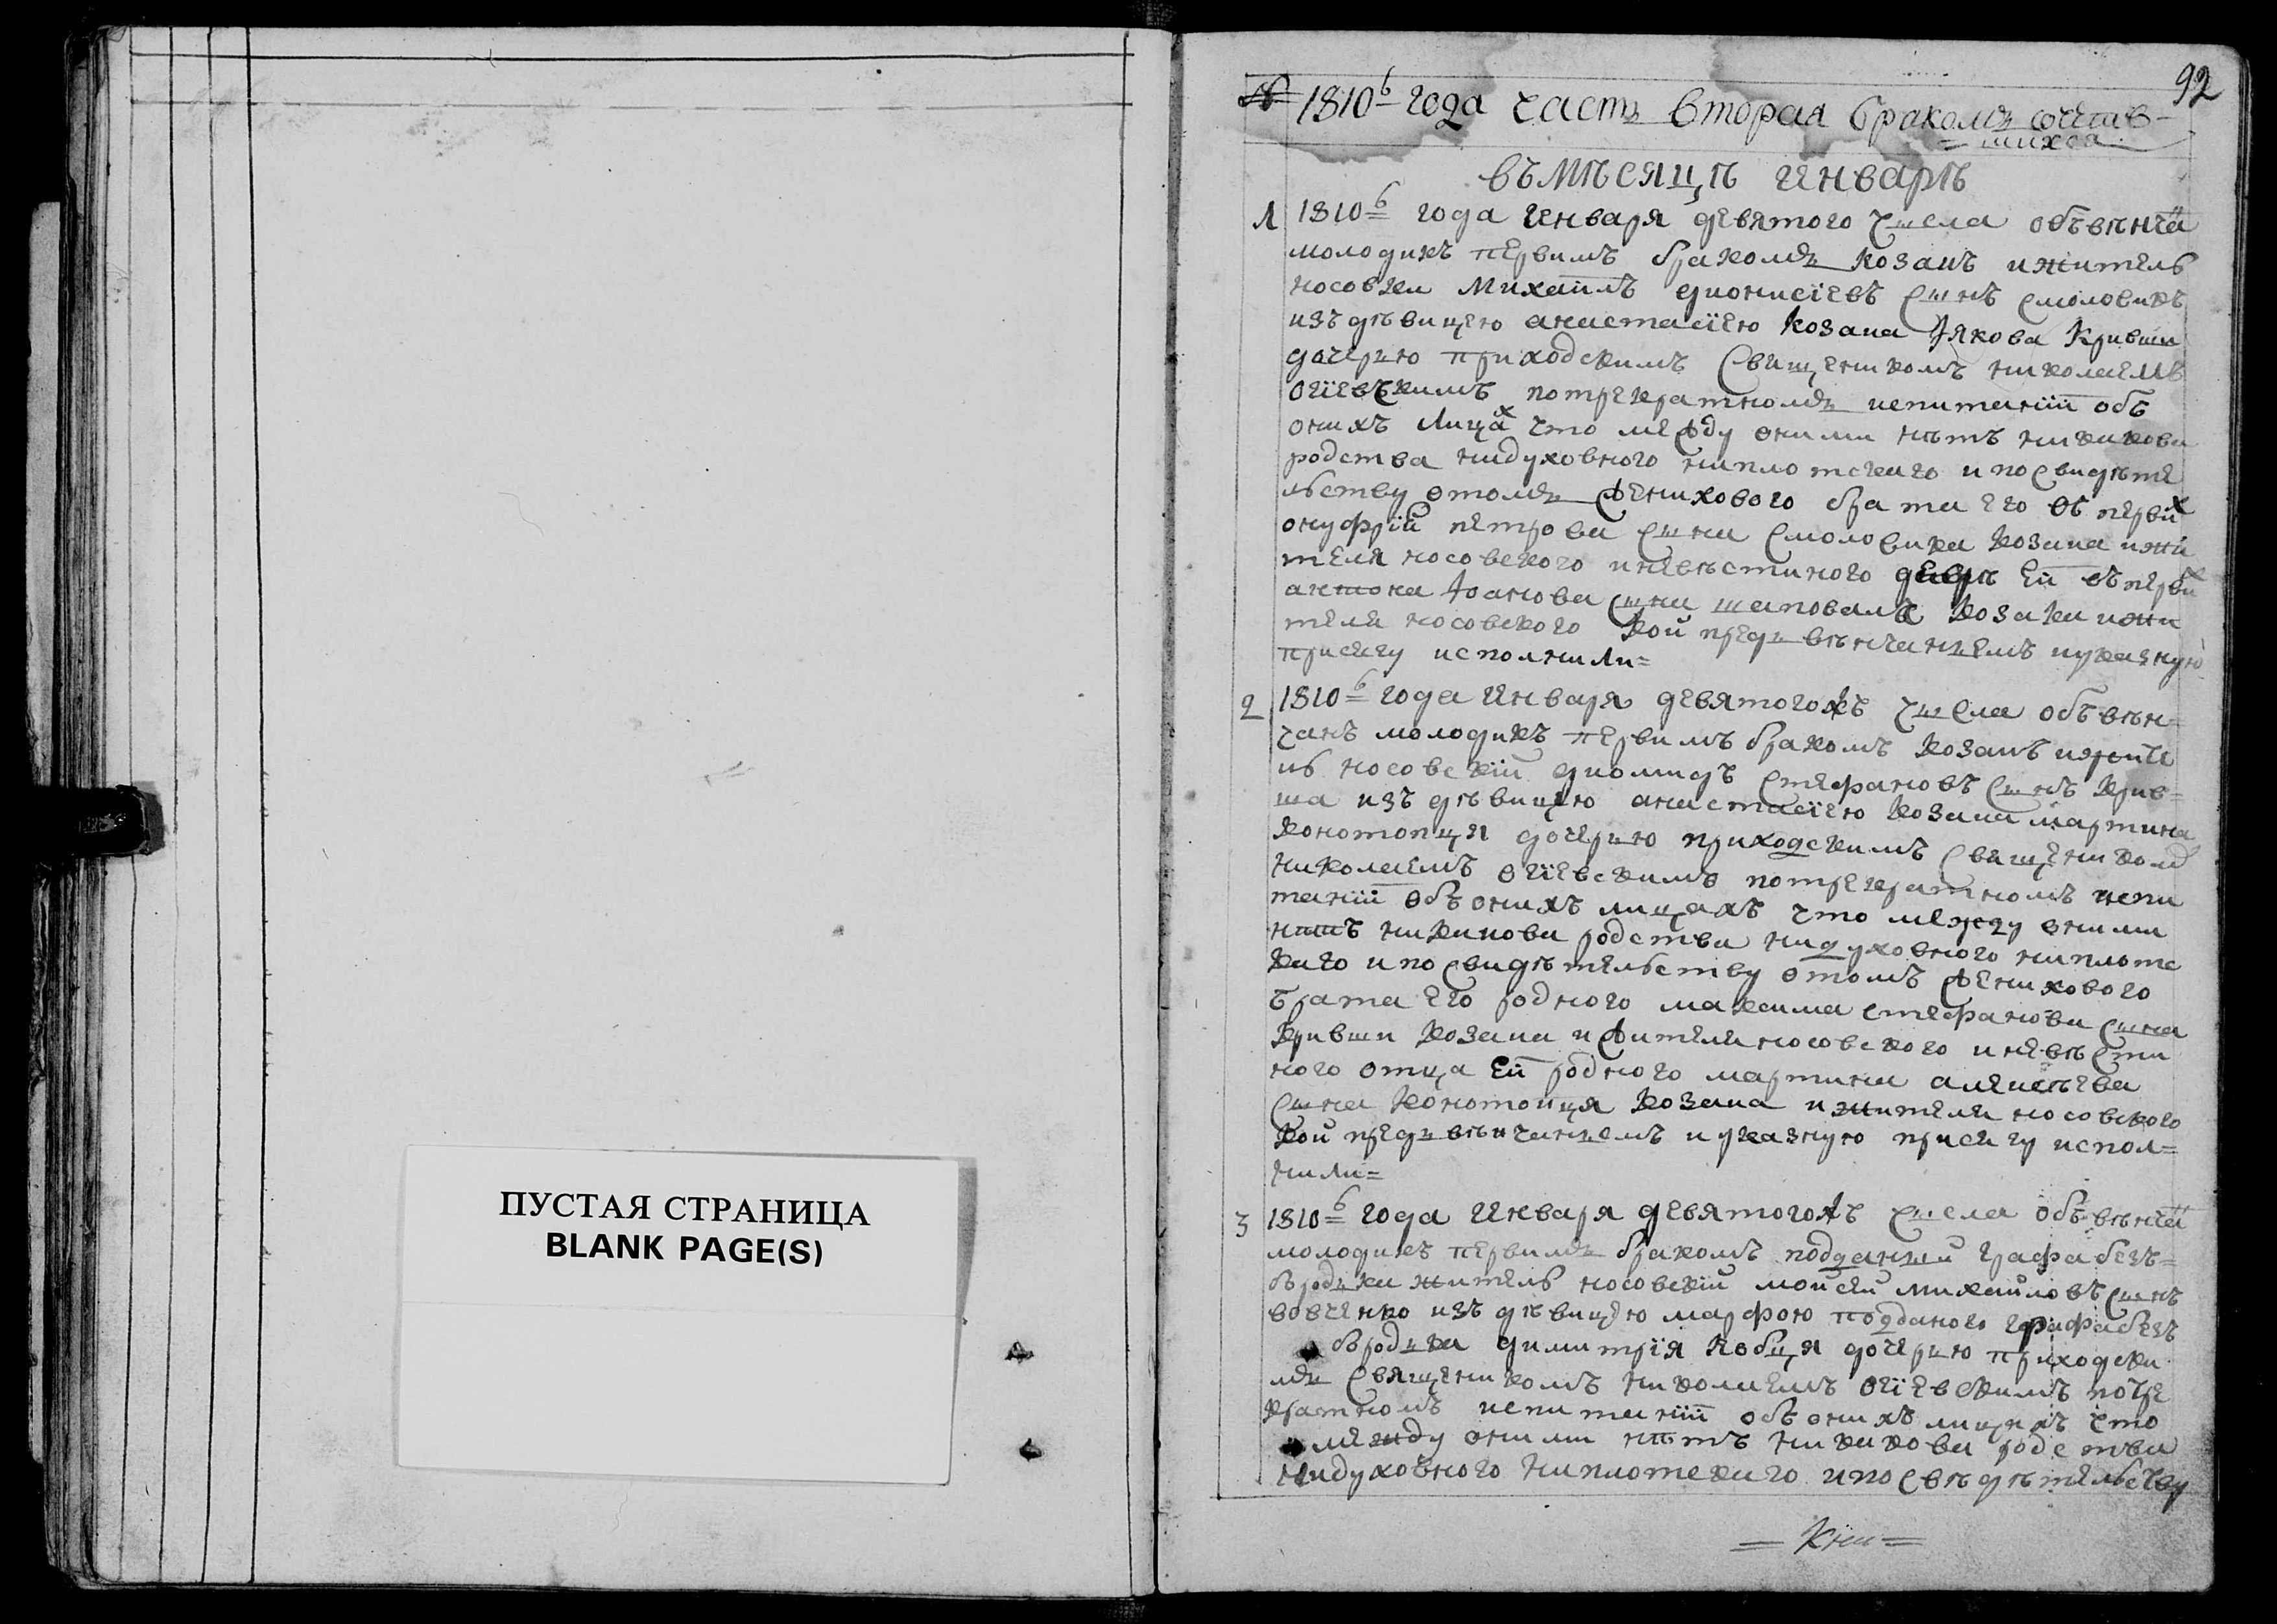 ПУСТАЯ СТРАНИЦА
BLANK PAGE(S)
92
1810го года часть вторая бракомъ сочетав-
шихся
въ мѣсяцѣ Январѣ
1 1810го года Января девятого числа объвѣнча
молодикъ первимъ бракомъ козакъ и житель
носовки Михаилъ дионисіевъ синъ смоловикъ
изъ дѣвицею анастасіею козака Якова Кривши
дочерью приходскимъ священикомъ николаемъ
огіевскимъ потрекратномъ испитаніи объ
онихъ лицах что между оними нѣтъ никакова
родства нидуховного ниплотскаго и по свидѣте
льству отомъ женихового брата его въ перви
онуфрій петрова сина смоловика козака и жи
теля носовского и невѣстиного ей въ перви
антона Іоанова сина шаповала козака и жи
теля носовского кои предъ вѣнчаніемъ иуказную
присягу исполнили=
2 1810го года Января девятогожъ числа объвѣн=
чанъ молодикъ первимъ бракомъ козакъ и жите
ль носовскій диомидъ стефановъ синъ Крив=
ша изъ дѣвицею анастасіею козака мартина
конотопця дочерью приходскимъ священиком
николаемъ огіевскимъ потрекратномъ испи
таніи объ онихъ лицахъ что между оними
нѣтъ никакова родства нидуховного ниплотс
каго и по свидѣтельству отомъ женихового
брата его родного максима стефанова сина
Кривши козака и жителя носовского и невѣсти
ного отца ей родного мартина алексѣева
сина конотопця козака и жителя носовского
кои предъ вѣнчаніемъ и указную присягу испол=
нили=
3 1810го года Января девятогожъ числа объвѣнча
молодикъ первимъ бракомъ подданній графа безъ=
бородька житель носовскій мойсей михайловъ синъ
вовченко изъ дѣвицею марфою подданого графа безъ
бородька димитрія кобця дочерью приходски
мъ священикомъ николаемъ огіевскимъ потре
кратномъ испитаніи объ онихъ лицахъ что
между оними нѣтъ никакова родства
нидуховного ниплотскаго и по свѣдѣтельству